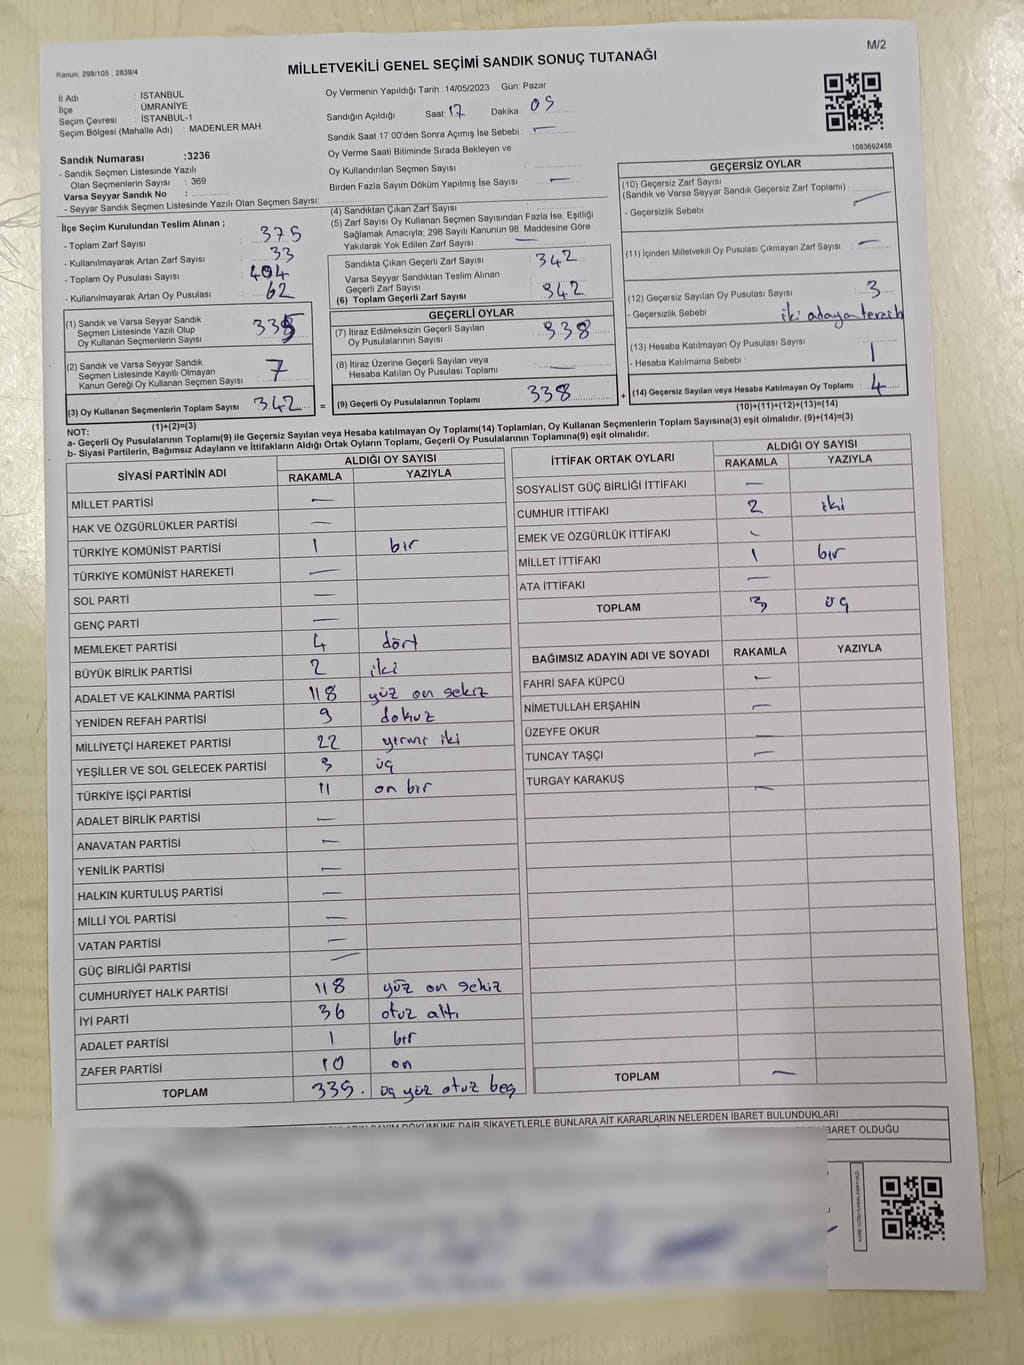 Kanun; 298/105 , 2839/4
M/2
MİLLETVEKİLİ GENEL SEÇİMİ SANDIK SONUÇ TUTANAĞI
İl Adı : İSTANBUL
İlçe : ÜMRANİYE
Seçim Çevresi : İSTANBUL-1
Seçim Bölgesi (Mahalle Adı) : MADENLER MAH.
Sandık Numarası :3236
- Sandık Seçmen Listesinde Yazılı
Olan Seçmenlerin Sayısı : 369
Varsa Seyyar Sandık No :
- Seyyar Sandık Seçmen Listesinde Yazılı Olan Seçmen Sayısı:
Oy Vermenin Yapıldığı Tarih :14/05/2023 Gün: Pazar
Sandığın Açıldığı Saat: 17 Dakika 05
Sandık Saat 17:00'den Sonra Açımış İse Sebebi : —
Oy Verme Saati Bitiminde Sırada Bekleyen ve
Oy Kullandırılan Seçmen Sayısı :
Birden Fazla Sayım Döküm Yapılmış İse Sayısı : —
1083692456
İlçe Seçim Kurulundan Teslim Alınan ;
- Toplam Zarf Sayısı : 375
- Kullanılmayarak Artan Zarf Sayısı : 33
- Toplam Oy Pusulası Sayısı : 404
- Kullanılmayarak Artan Oy Pusulası : 62
(1) Sandık ve Varsa Seyyar Sandık
Seçmen Listesinde Yazılı Olup
Oy Kullanan Seçmenlerin Sayısı : 335
(2) Sandık ve Varsa Seyyar Sandık
Listesinde Kayıtlı Olmayan
Kanun Gereği Oy Kullanan Seçmen Sayısı : 7
(3) Oy Kullanan Seçmenlerin Toplam Sayısı : 342
(1)+(2)=(3)
(4) Sandıktan Çıkan Zarf Sayısı :
(5) Zarf Sayısı Oy Kullanan Seçmen Sayısından Fazla İse, Eşitliği
Sağlamak Amacıyla; 298 Sayılı Kanunun 98. Maddesine Göre
Yakılarak Yok Edilen Zarf Sayısı : —
Sandıkta Çıkan Geçerli Zarf Sayısı : 342
Varsa Seyyar Sandıktan Teslim Alınan
Geçerli Zarf Sayısı :
(6) Toplam Geçerli Zarf Sayısı : 342
GEÇERLİ OYLAR
(7) İtiraz Edilmeksizin Geçerli Sayılan
Oy Pusulalarının Sayısı : 338
(8) İtiraz Üzerine Geçerli Sayılan veya
Hesaba Katılan Oy Pusulası Toplamı : —
= (9) Geçerli Oy Pusulalarının Toplamı : 338
GEÇERSİZ OYLAR
(10) Geçersiz Zarf Sayısı
(Sandık ve Varsa Seyyar Sandık Geçersiz Zarf Toplamı) : —
- Geçersizlik Sebebi :
(11) İçinden Milletvekili Oy Pusulası Çıkmayan Zarf Sayısı : —
(12) Geçersiz Sayılan Oy Pusulası Sayısı : 3
- Geçersizlik Sebebi : iki adaya tercih
(13) Hesaba Katılmayan Oy Pusulası Sayısı : 1
- Hesaba Katılmama Sebebi :
+ (14) Geçersiz Sayılan veya Hesaba Katılmayan Oy Toplamı : 4
(10)+(11)+(12)+(13)=(14)
NOT:
a- Geçerli Oy Pusulalarının Toplamı(9) ile Geçersiz Sayılan veya Hesaba katılmayan Oy Toplamı(14) Toplamları, Oy Kullanan Seçmenlerin Toplam Sayısına(3) eşit olmalıdır. (9)+(14)=(3)
b- Siyasi Partilerin, Bağımsız Adayların ve İttifakların Aldığı Ortak Oyların Toplamı, Geçerli Oy Pusulalarının Toplamına(9) eşit olmalıdır.
SİYASİ PARTİNİN ADI ALDIĞI OY SAYISI
RAKAMLA YAZIYLA
MİLLET PARTİSİ —
HAK VE ÖZGÜRLÜKLER PARTİSİ —
TÜRKİYE KOMÜNİST PARTİSİ 1 bir
TÜRKİYE KOMÜNİST HAREKETİ —
SOL PARTİ —
GENÇ PARTİ —
MEMLEKET PARTİSİ 4 dört
BÜYÜK BİRLİK PARTİSİ 2 iki
ADALET VE KALKINMA PARTİSİ 118 yüz on sekiz
YENİDEN REFAH PARTİSİ 9 dokuz
MİLLİYETÇİ HAREKET PARTİSİ 22 yirmi iki
YEŞİLLER VE SOL GELECEK PARTİSİ 3 üç
TÜRKİYE İŞÇİ PARTİSİ 11 on bir
ADALET BİRLİK PARTİSİ —
ANAVATAN PARTİSİ —
YENİLİK PARTİSİ —
HALKIN KURTULUŞ PARTİSİ —
MİLLİ YOL PARTİSİ —
VATAN PARTİSİ —
GÜÇ BİRLİĞİ PARTİSİ —
CUMHURİYET HALK PARTİSİ 118 yüz on sekiz
İYİ PARTİ 36 otuz altı
ADALET PARTİSİ 1 bir
ZAFER PARTİSİ 10 on
TOPLAM 335. üç yüz otuz beş
İTTİFAK ORTAK OYLARI ALDIĞI OY SAYISI
RAKAMLA YAZIYLA
SOSYALİST GÜÇ BİRLİĞİ İTTİFAKI —
CUMHUR İTTİFAKI 2 iki
EMEK VE ÖZGÜRLÜK İTTİFAKI —
MİLLET İTTİFAKI 1 bir
ATA İTTİFAKI —
TOPLAM 3 üç
BAĞIMSIZ ADAYIN ADI VE SOYADI RAKAMLA YAZIYLA
FAHRİ SAFA KÜPCÜ —
NİMETULLAH ERŞAHİN —
ÜZEYFE OKUR —
TUNCAY TAŞÇI —
TURGAY KARAKUŞ —
TOPLAM —
DÖKÜMÜNE DAİR ŞİKAYETLERLE BUNLARA AİT KARARLARIN NELERDEN İBARET BULUNDUKLARI
İBARET OLDUĞU